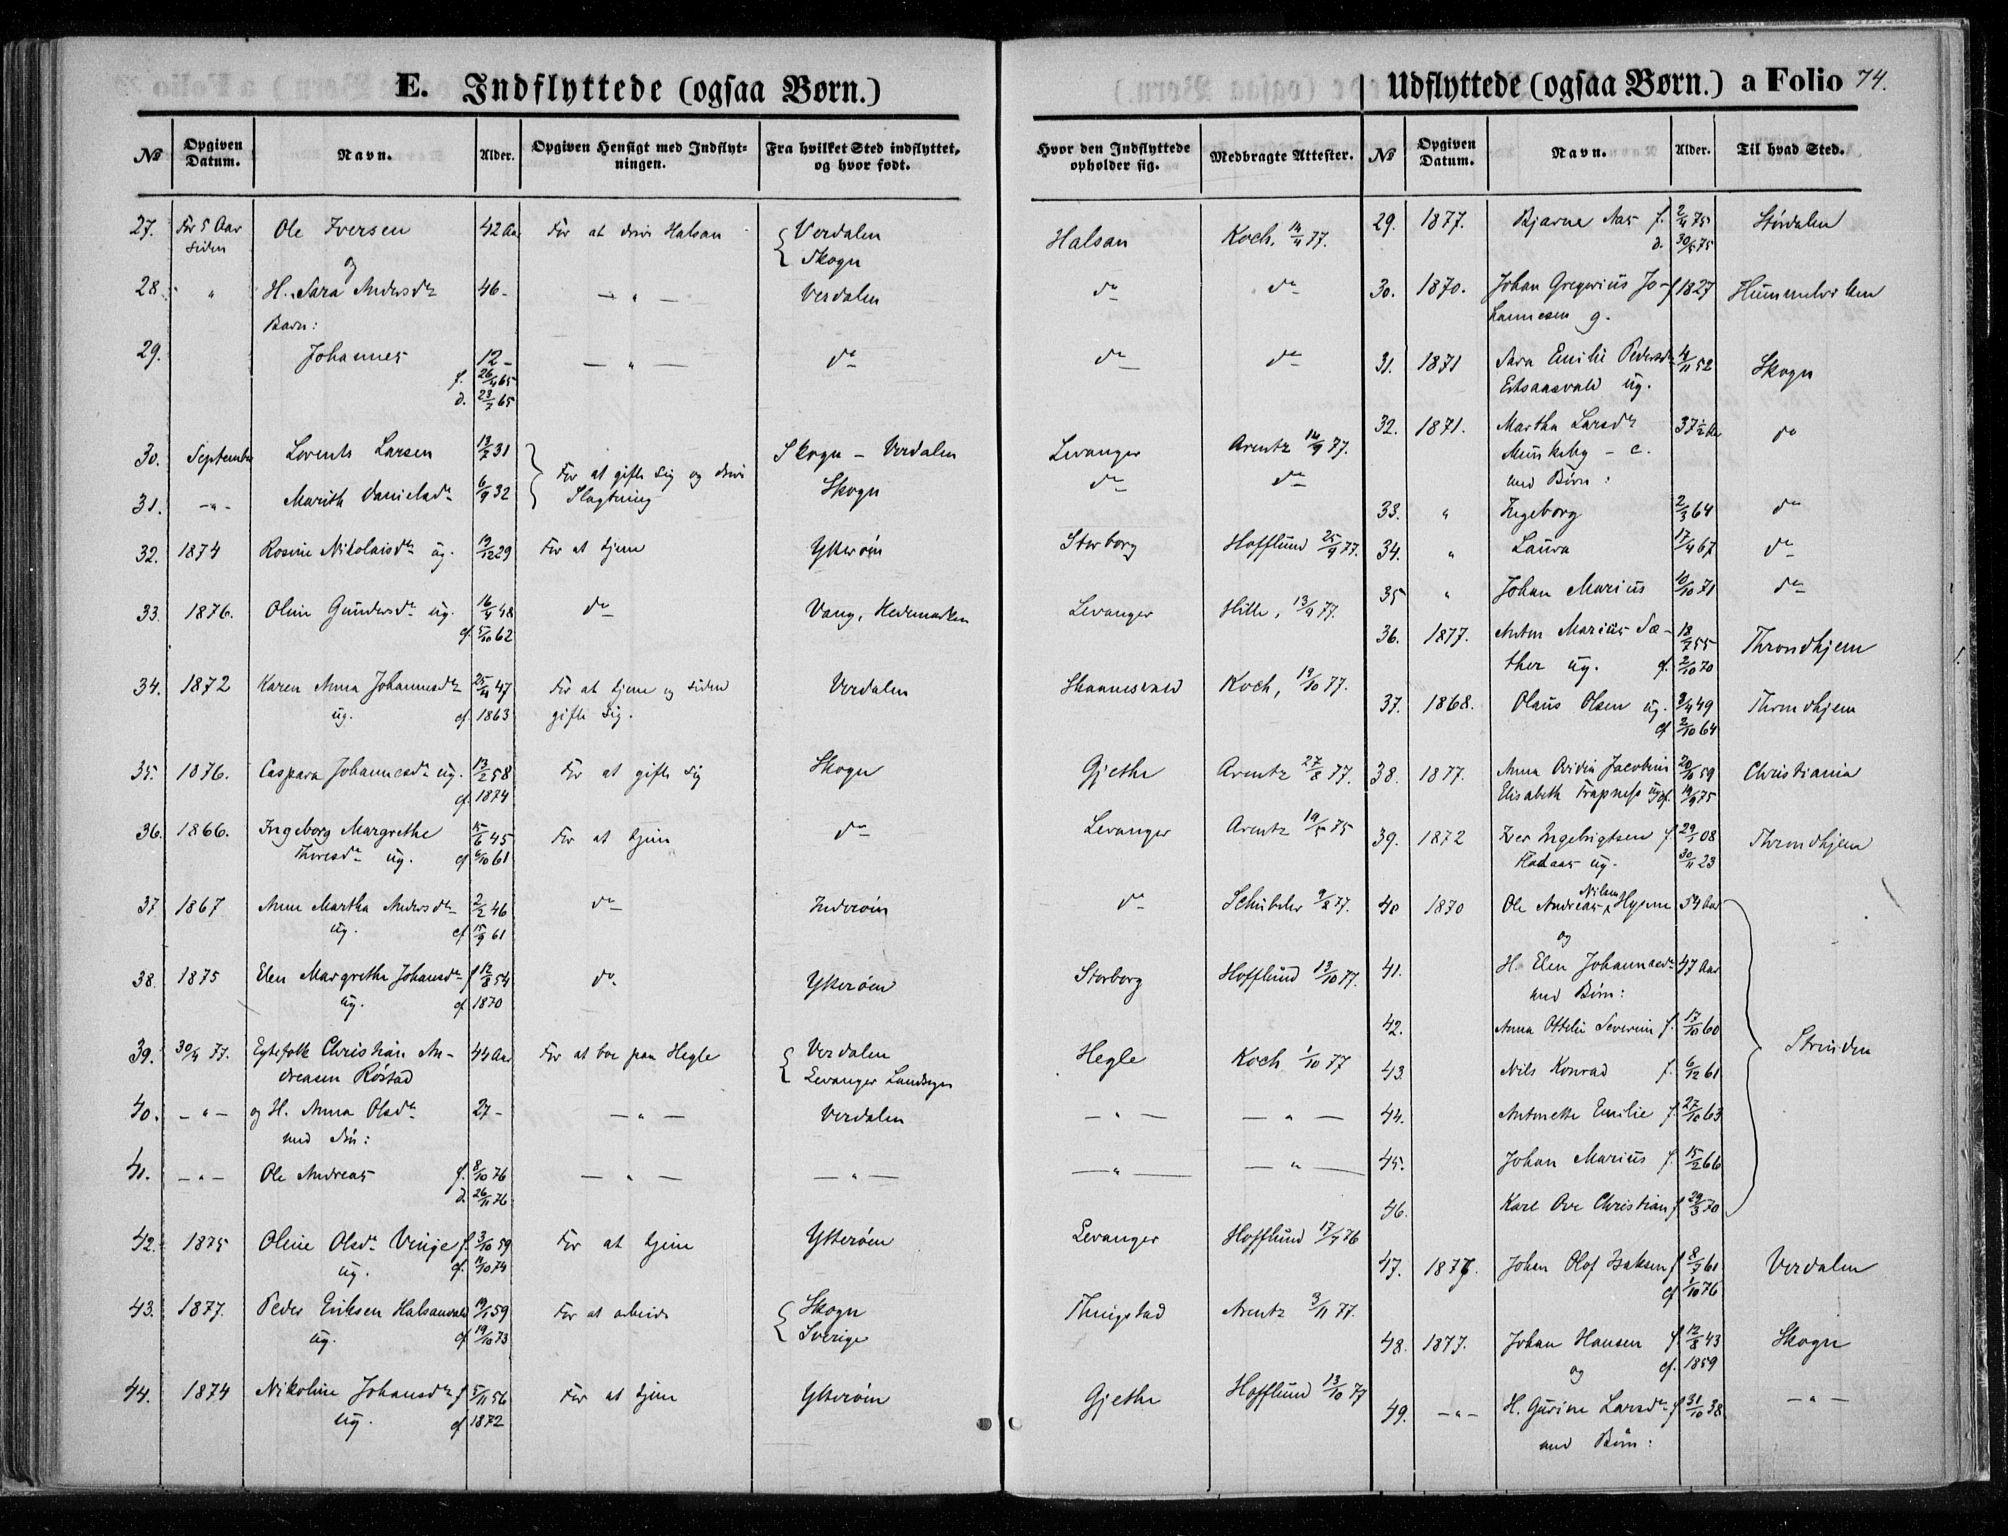 E. Indflyttede (ogsaa Børn.)
No
Opgiven Datum.
Navn.
Alder.
Opgiven Hensigt med Indflyt-
ningen.
Fra hvilket Sted indflyttet,
og hvor født.
27. For 5 Aar Ole Iversen 42 Aar For at drive Halsan { Verdalen
siden og Skogn
28 " H. Sara Andersdr 46 - — " — Verdalen
Barn:
29. Johannes 12 - — " — do
f. 26/4 65
d. 23/7 65
30. September Lorents Larsen 13/7 31 } For at gifte sig og drive Skogn - Verdalen
31. -"- Marith Danielsdr 6/9 32 Slagtning Skogn
32. 1874 Rosine Nikolaisdr ug. 19/12 29 For at tjene Ytterøen
33. 1876. Oline Gundersdr ug. 16/4 48 do Vang, Hedemarken
cf. 5/10 62
34. 1872 Karen Anna Johannesdr 25/4 47 For at tjene og siden Verdalen
ug. cf. 1863 gifte sig.
35. 1876. Caspara Johannesdr ug. 13/2 58 For at gifte sig Skogn
cf. 1874
36. 1866. Ingeborg Margrethe 15/6 45 For at tjene do
Thoresdr ug. cf 6/10 61
37 1867 Anne Martha Andersdr 2/2 46 do Inderøen
ug. cf 15/9 61
38. 1875 Elen Margrethe Johansdr f 12/8 54 do Ytterøen
ug. cf 1870
39. 30/4 77. Egtefolk Christian An- 44 Aar For at bo paa Hegle { Verdalen
dreasen Røstad Levanger Landsogn
40. -"- og H. Anna Olsdr 27 - — " — Verdalen
med Søn:
41. -"- Ole Andreas f. 8/10 76 — " — — " —
d. 26/11 76
42. 1875 Oline Olsdr Vinge f. 3/10 59 For at tjene Ytterøen
ug. cf. 11/10 74
43. 1877. Peder Eriksen Halsanvald 19/1 59 For at arbeide { Skogn
ug. cf 19/10 73 Sverige
44. 1874 Nikoline Johansdr f 5/11 56 For at tjene Ytterøen
ug. cf 1872
Udflyttede (ogsaa Børn.) a Folio 74.
Hvor den Indflyttede
opholder sig.
Medbragte Attester.
Halsan Koch, 14/4 77.
do do
do do
Levanger Arentz 14/9 77.
do do
Storborg Hofflund 25/9 77.
Levanger Hille, 13/4 77.
Koch, 19/10 77.
Gjethe Arentz 27/8 77.
Levanger Arentz 19/5 75
do Schübeler 9/8 77.
Storborg Hofflund 13/10 77.
Hegle Koch 1/10 77
— " — — " —
— " — — " —
Levanger Hofflund 17/4 76
Thingstad Arentz 3/11 77.
Gjethe Hofflund 13/10 77
No
Opgiven Datum.
Navn.
Alder.
Til hvad Sted.
29. 1877. Bjarne Aas f. 2/4 75 Størdalen
d. 30/5 75
30. 1870. Johan Gregorius Jo- f 1827 Hummelviken
hannesen g.
31. 1871 Sara Emilie Pedersdr 4/11 52 Skogn
ug.
32. 1871. Martha Larsdr 37 1/2 Aar do
Munkeby - e.
med Børn:
33. " Ingeborg 2/3 64 do
34. " Laura 17/4 67 do
35 " Johan Marius 10/10 71 do
36. 1877. Anton Marius Sæ- 18/7 55 Throndhjem
ther ug. cf. 2/10 70
37. 1868. Olaus Olsen ug. 3/4 49 Throndhjem
cf 2/10 64
38. 1877. Anna Ovidia Jacobine 20/10 59 Christiania
Elisabeth Trapness ug cf. 19/9 75
39. 1872 Iver Ingebrigtsen f. 29/1 08 Throndhjem
ug. 30/11 23
40 1870 Ole Andreas Nilsen Hynne 54 Aar
og
41. H. Elen Johannesdr 47 Aar
med Børn:
42. Anna Ottilie Severine f. 17/10 60
43. Nils Konrad f. 6/12 61 Strinden
44. Antonette Emilie f. 27/10 63
45. Johan Marius f. 15/2 66
46. Karl Ove Christian f. 29/3 70
47. 1877. Johan Olof Isaksen f 8/7 61 Verdalen
cf 1/10 76
48. 1877. Johan Hansen f. 12/8 43 Skogn
og cf. 1859
49. -"- H. Gurine Larsdr f 31/10 38 — " —
med Børn: